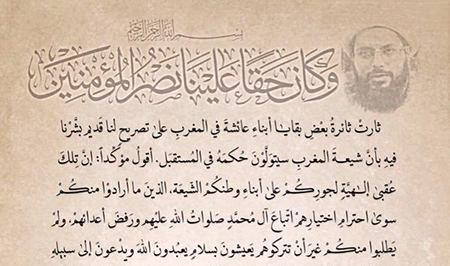 بسم الله الرحمن الرحيم
وَكَانَ حَقًّا عَلَيْنَا نَصْرُ الْمُؤْمِنِينَ
ثارتْ ثائرةُ بعْضِ بقايا أبناءِ عائشةَ في المغربِ على تصريحٍ لنا قديمٍ بشَّرْنا
فيهِ بأنَّ شيعةَ المغربِ سيتولَّوْنَ حُكمَهُ في المُستقبَل. أقولُ مؤَكِّداً: إنَّ تِلكَ
عُقبىً إلهيَّةٌ لجورِكُم علَى أبناءِ وطنِكُمُ الشِّيعَة، الذينَ ما أرادُوا منكُمْ
سوىٰ احترامِ اختيارِهِمْ اتِّباعَ آلِ مُحمَّدٍ صلواتُ اللهِ عليهِم ورفضَ أعدائِهمْ، ولَمْ
يَطلبُوا منكُمْ غيرَ أنْ تتركُوهُم يَعيشونَ بسلامٍ يعبُدونَ اللهَ ويدْعونَ إلىٰ سبيلِهِ